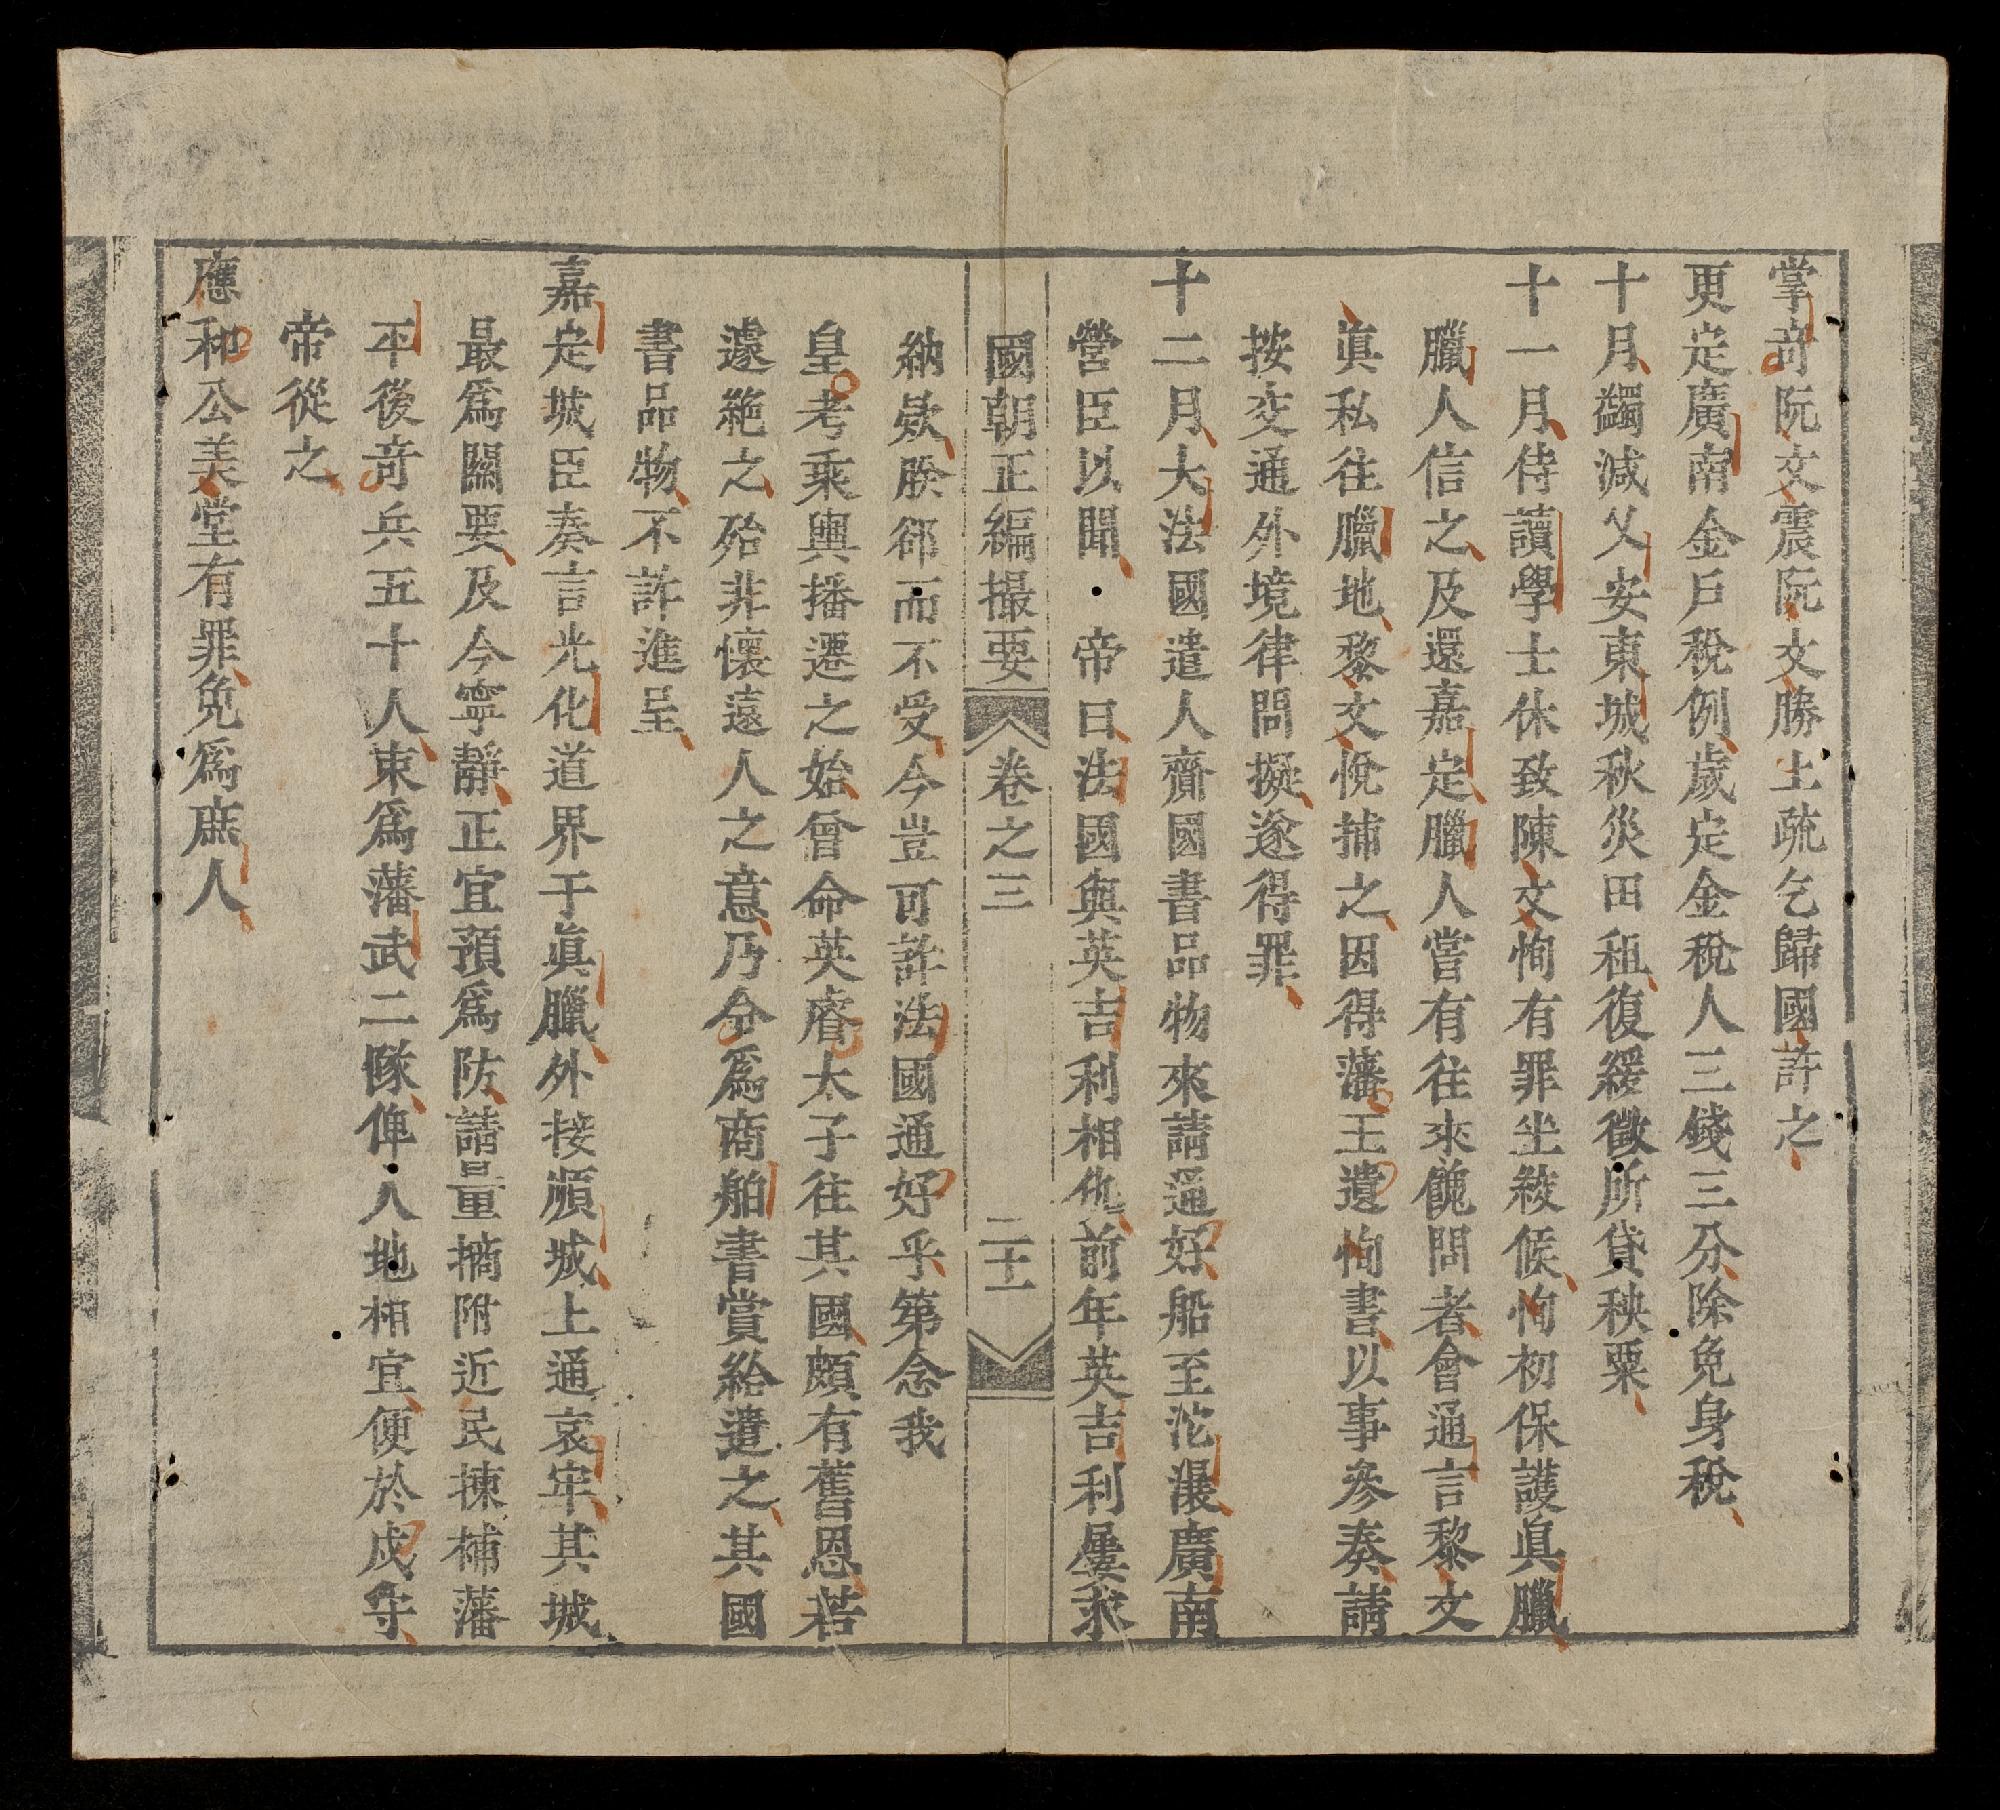 掌奇阮文震阮文勝上疏乞歸國許之
更定廣南金戶稅例歲定金稅人三錢三分除免身稅
十月蠲減乂安東城秋災田租復緩徵所貸秧粟
十一月侍讀學士休致陳文恂有罪坐絞候恂初保護眞臘
臘人信之及還嘉定臘人嘗有往來餽問者會通言黎文
眞私往臘地黎文悅捕之因得藩王遺恂書以事參奏請
按交通外境律問擬遂得罪
十二月大法國遣人齎國書品物來請通好船至沱㶞廣南
營臣以聞帝曰法國與英吉利相仇前年英吉利屢求
國朝正編撮要 卷之三 二十一
納欵朕郤而不受今豈可許法國通好乎第念我
皇考乘輿播遷之始曾命英睿太子往其國頗有舊恩若
遽絶之殆非懷遠人之意乃令爲商舶書賞給遣之其國
書品物不許進呈
嘉定城臣奏言光化道界于眞臘外接㵋城上通哀牢其城
最爲關要及今寧靜正宜預爲防請量摘附近民揀補藩
平後奇兵五十人束爲藩武二隊俾人地相宜便於戍守
帝從之
應和公美堂有罪免爲庶人